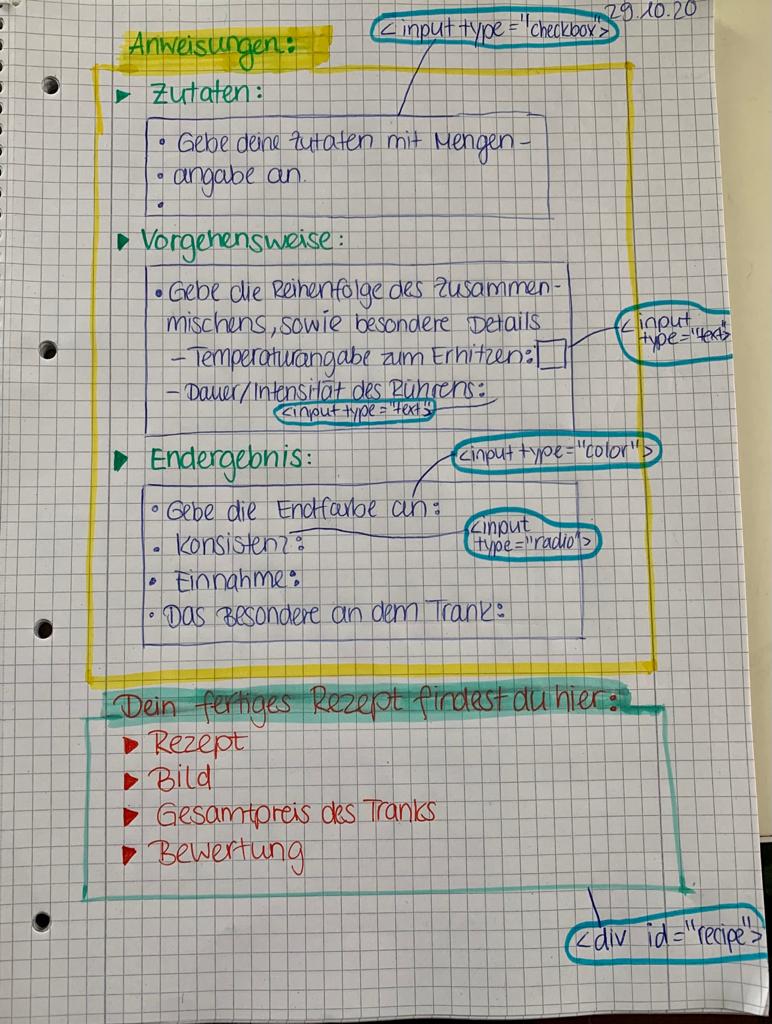 29.10.20
<input type="checkbox">
Anweisungen:
Zutaten:
• Gebe deine Zutaten mit Mengen-
• angabe an.
•
Vorgehensweise:
• Gebe die Reihenfolge des Zusammen-
mischens, sowie besondere Details
– Temperaturangabe zum Erhitzen:
<input
type="text>
– Dauer/Intensität des Rührens:
<input type="text>
Endergebnis:
<input type="color">
• Gebe die Endfarbe an:
• Konsistenz:
<input
type="radio">
• Einnahme:
• Das Besondere an dem Trank:
Dein fertiges Rezept findest du hier:
Rezept
Bild
Gesamtpreis des Tranks
Bewertung
<div id="recipe">